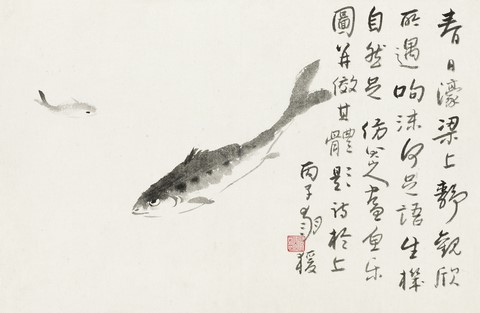 春日濠梁上靜觀欣
所遇呴沫何足語生機
自然足仿八大山人畫魚樂
圖并倣其體題詩於上
丙子